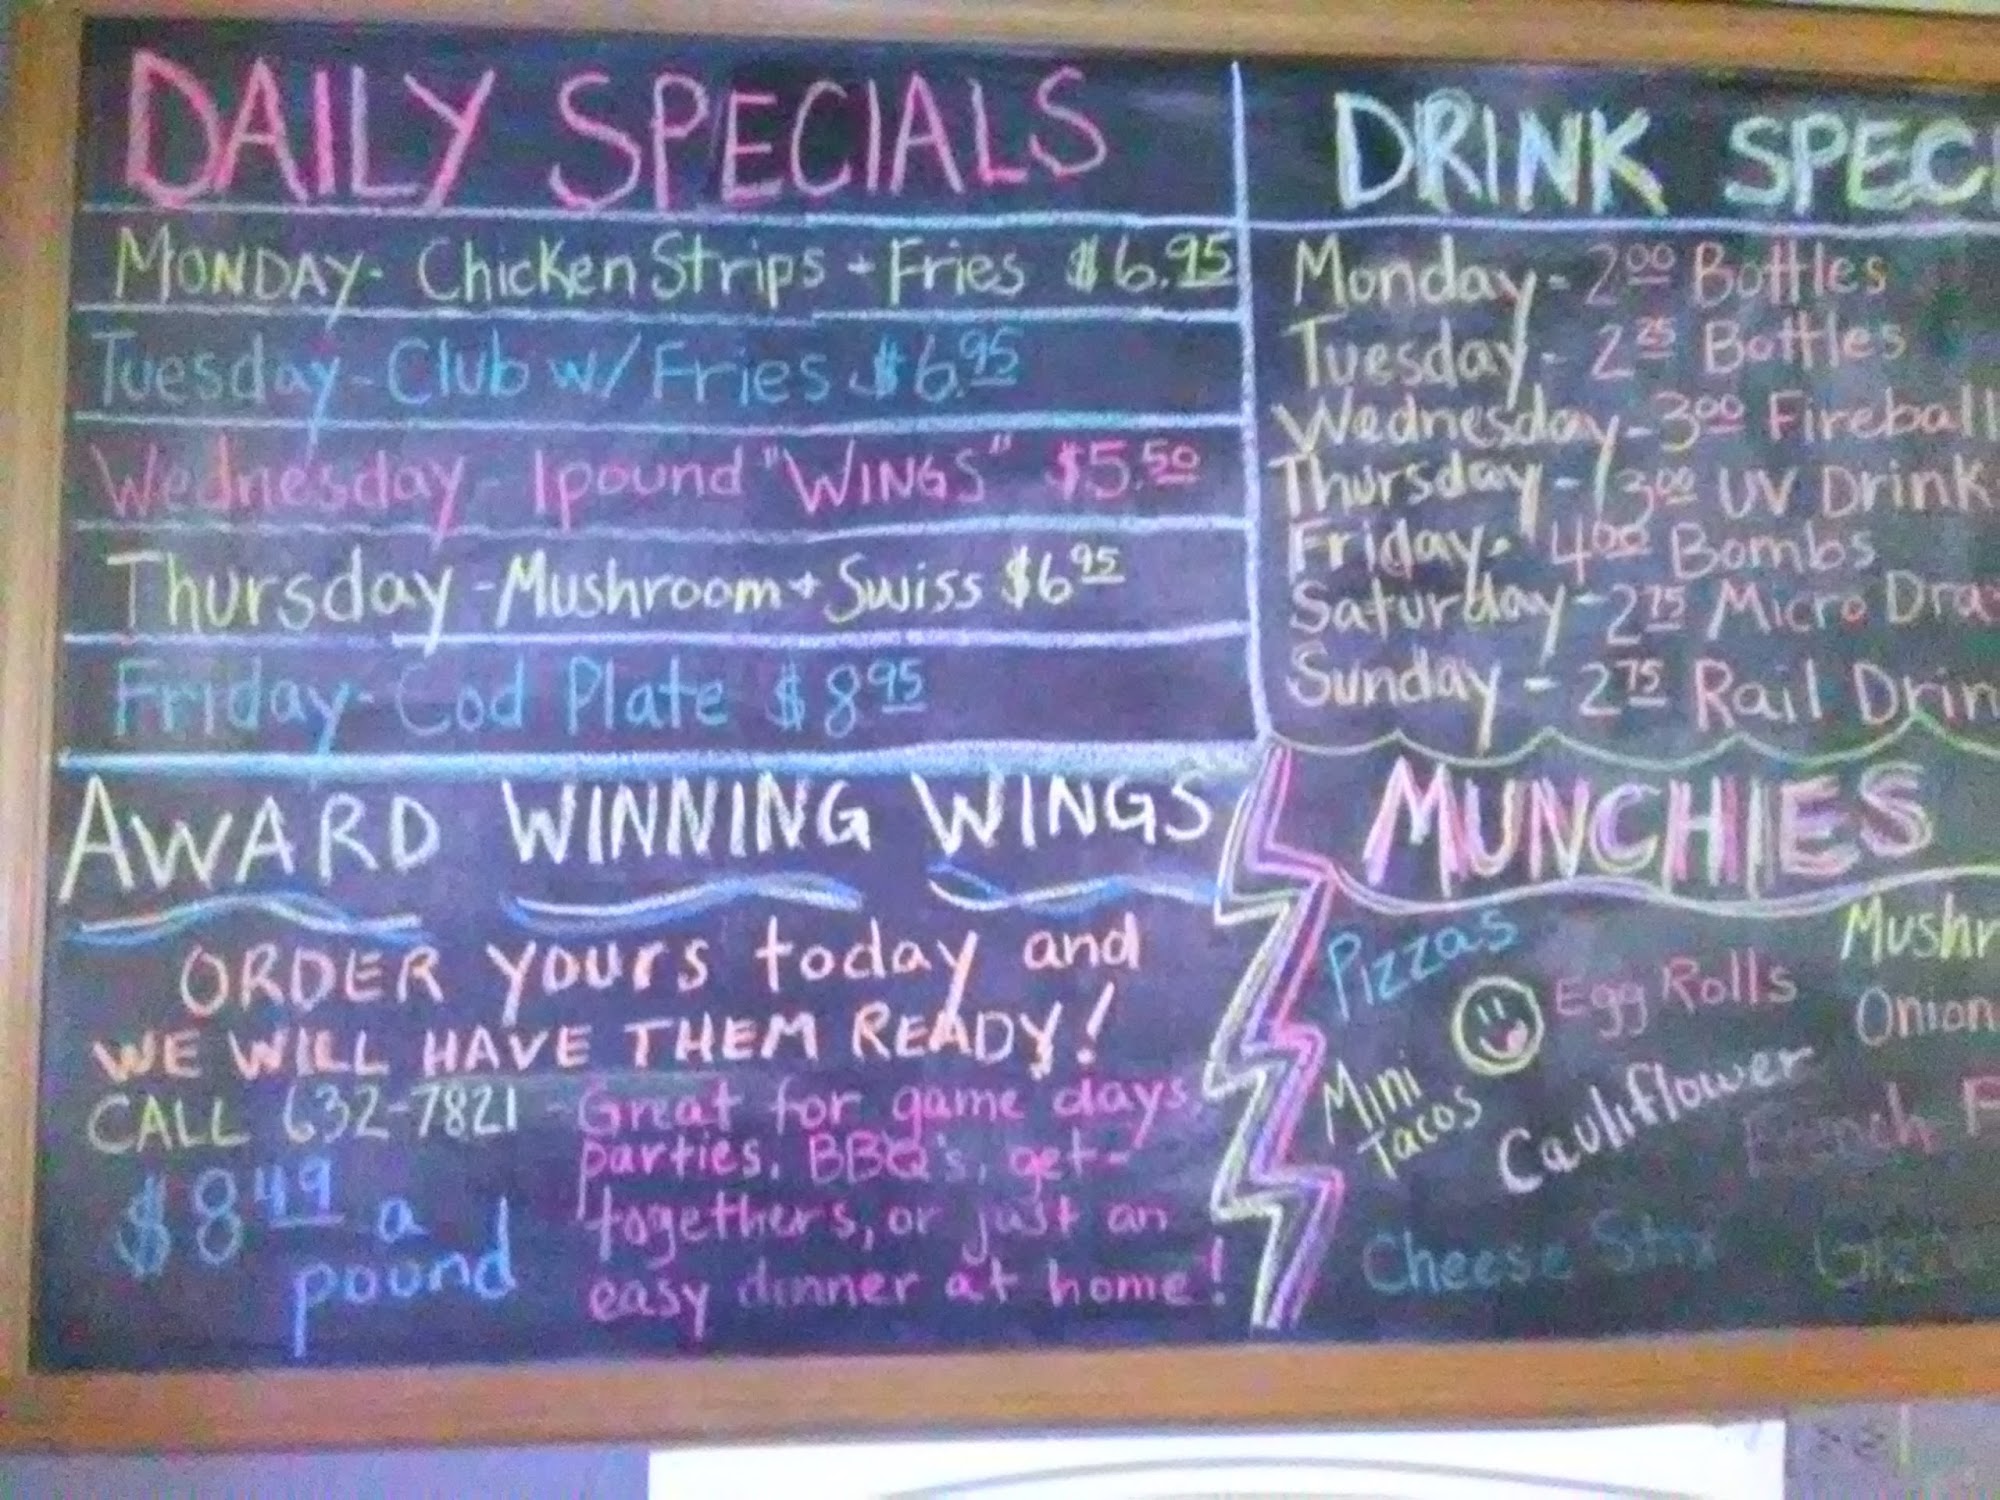 DAILY SPECIALS
MONDAY- Chicken Strips + Fries $6.95
Tuesday-Club w/ Fries $6.95
Wednesday- 1pound "WINGS" $5.50
Thursday-Mushroom + Swiss $6 95
Friday-Cod Plate $8 95
DRINK SPECI
Monday- 2 00 Bottles
Tuesday- 2 25 Bottles
Wednesday-3 00 Fireball
Thursday- 3 00 UV Drink
Friday- 4 00 Bombs
Saturday-2 75 Micro Dra
Sunday - 2 75 Rail Drin
AWARD WINNING WINGS
ORDER yours today and
WE WILL HAVE THEM READY!
CALL 632-7821 - Great for game days,
parties, BBQ's, get-
togethers, or just an
easy dinner at home!
$8 49 a
pound
MUNCHIES
Pizzas
Egg Rolls
Mushr
Onion
Mini
Tacos
Cauliflower
French F
Cheese